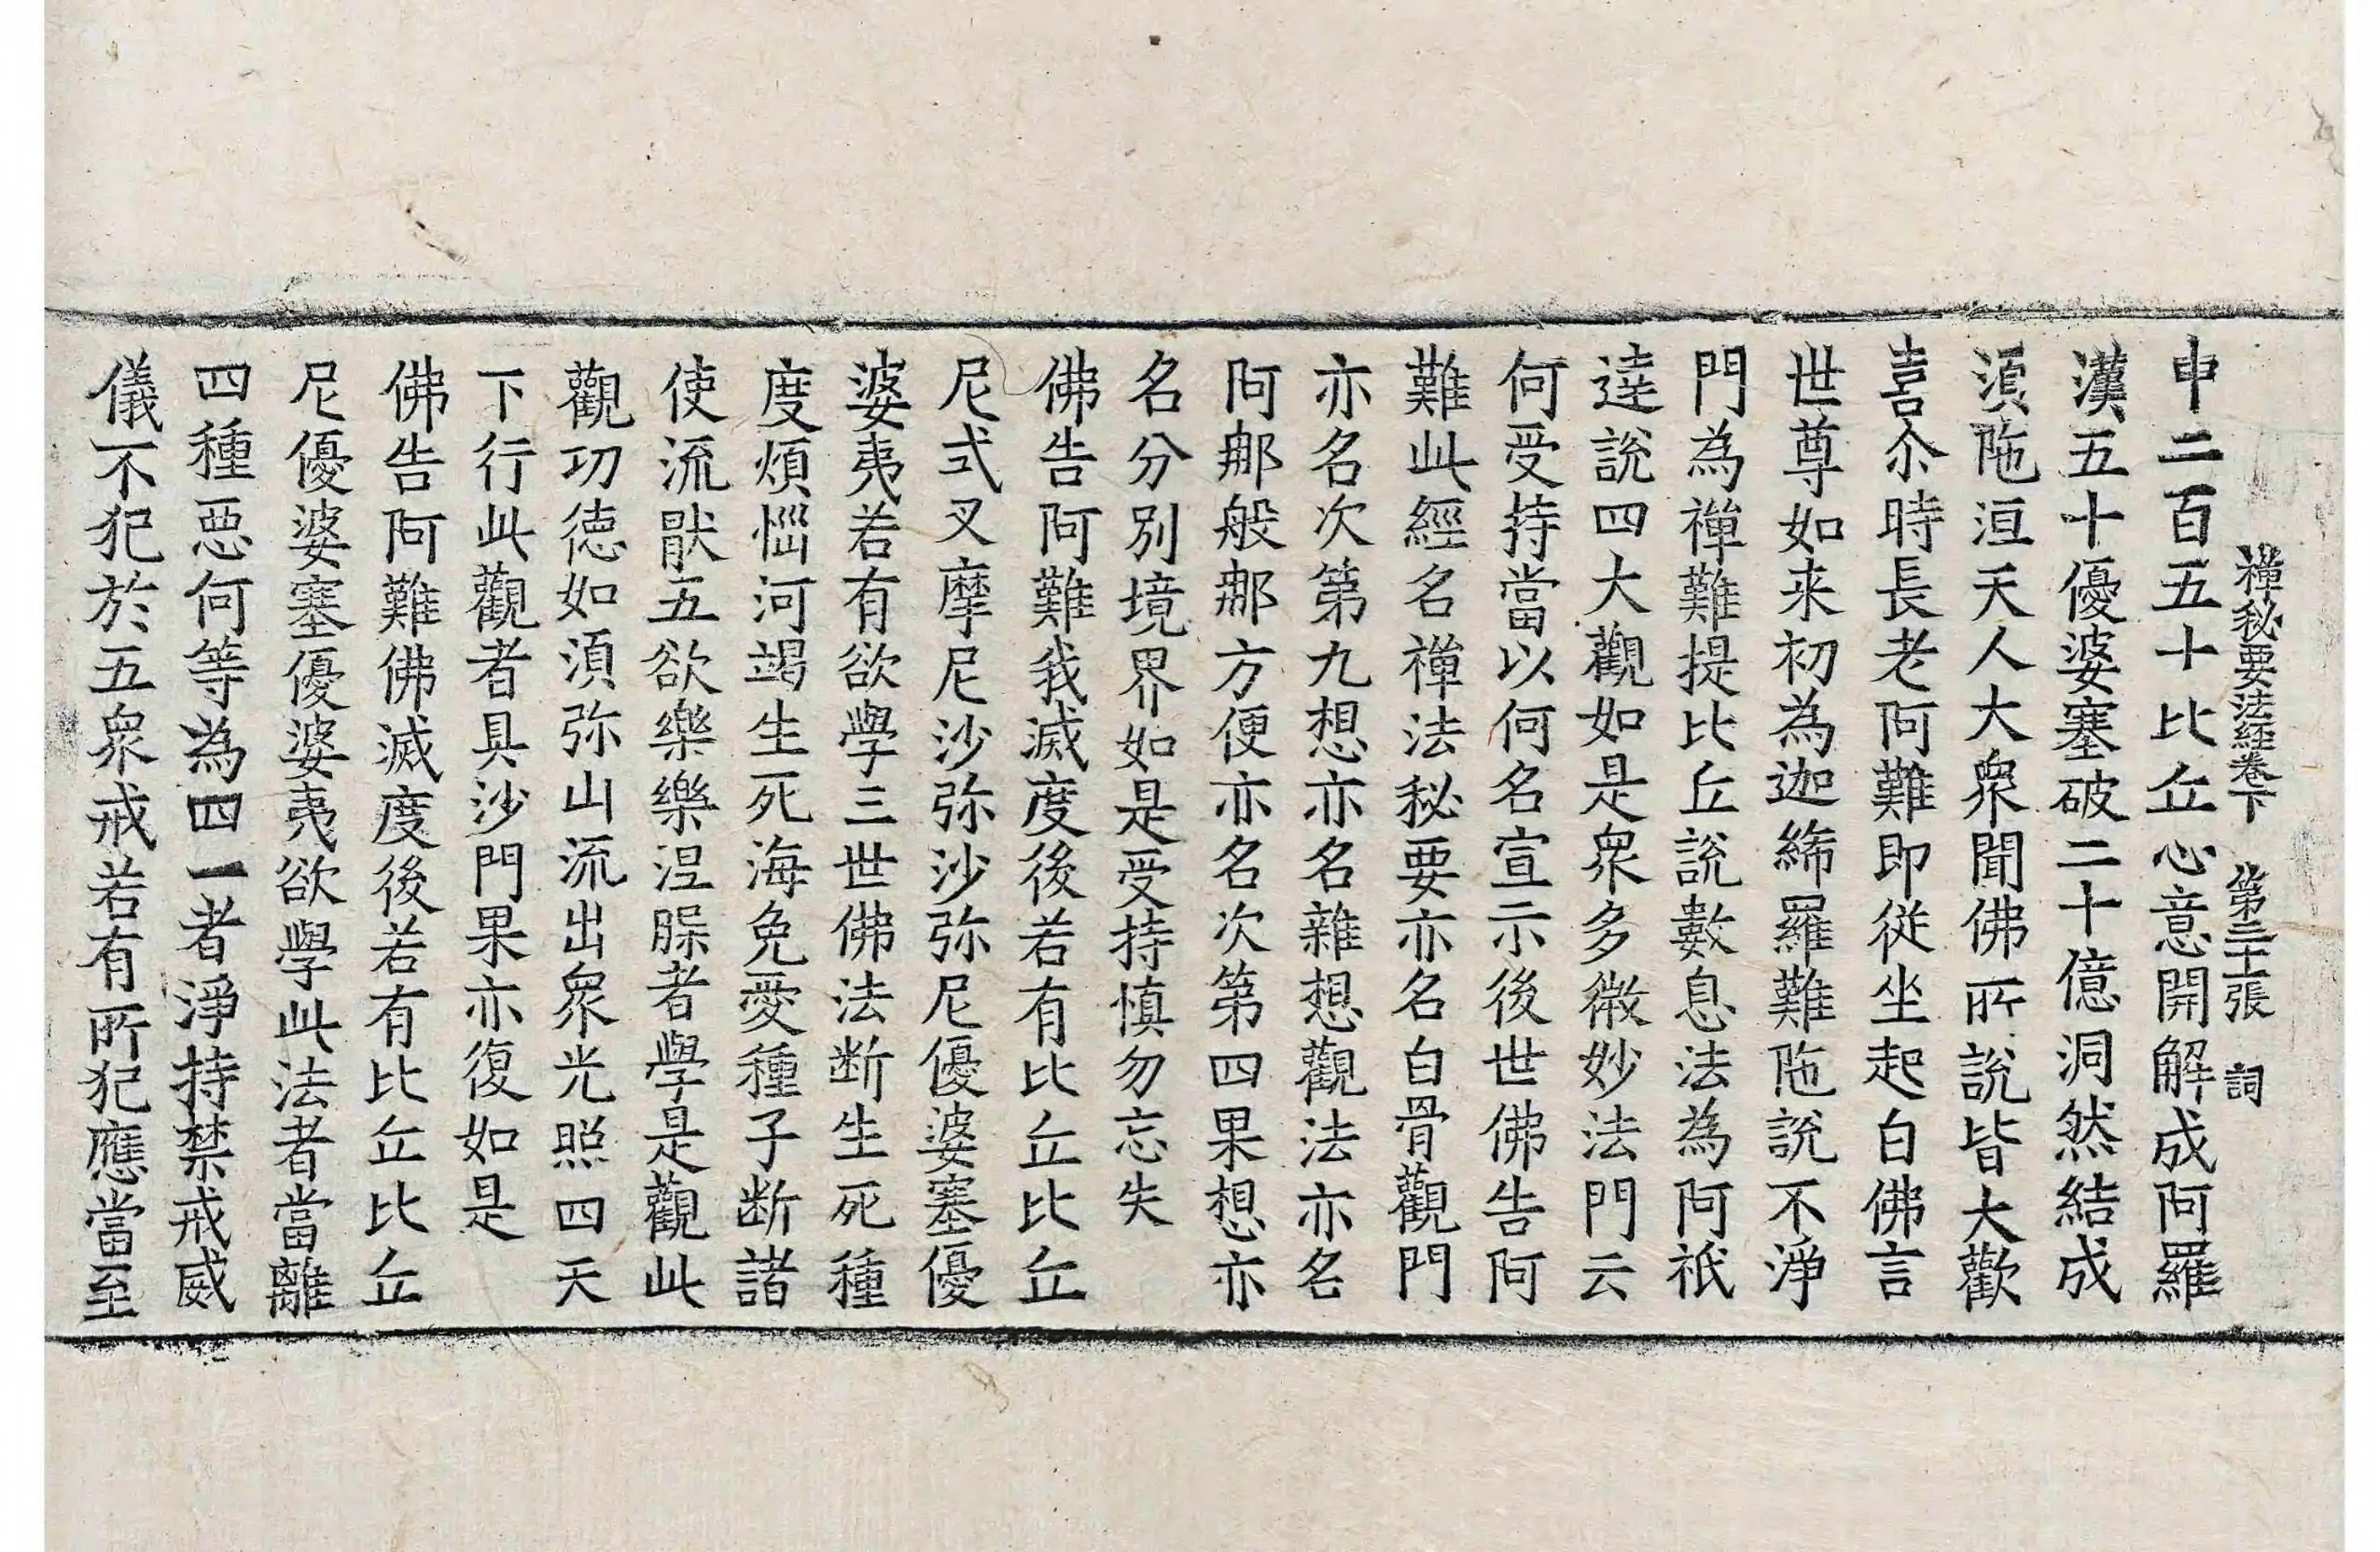 禪秘要法經卷下　第三十張　詞
中二百五十比丘心意開解成阿羅
漢五十優婆塞破二十億洞然結成
湏陁洹天人大衆聞佛所說皆大歡
喜尒時長老阿難即從坐起白佛言
世尊如来初為迦絺羅難陁說不淨
門為禪難提比丘說數息法為阿祇
達說四大觀如是衆多微妙法門云
何受持當以何名宣示後世佛告阿
難此經名禪法秘要亦名白骨觀門
亦名次第九想亦名雜想觀法亦名
阿那般那方便亦名次第四果想亦
名分別境界如是受持慎勿忘失
佛告阿難我滅度後若有比丘比丘
尼式叉摩尼沙弥沙弥尼優婆塞優
婆夷若有欲學三世佛法断生死種
度煩惱河竭生死海免愛種子断諸
使流猒五欲樂樂涅槃者學是觀此
觀功徳如湏弥山流出衆光照四天
下行此觀者具沙門果亦復如是
佛告阿難佛滅度後若有比丘比丘
尼優婆塞優婆夷欲學此法者當離
四種惡何等為四一者淨持禁戒威
儀不犯於五衆戒若有所犯應當至